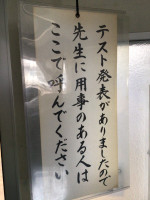 テスト発表がありましたので
先生に用事のある人は
ここで呼んでください